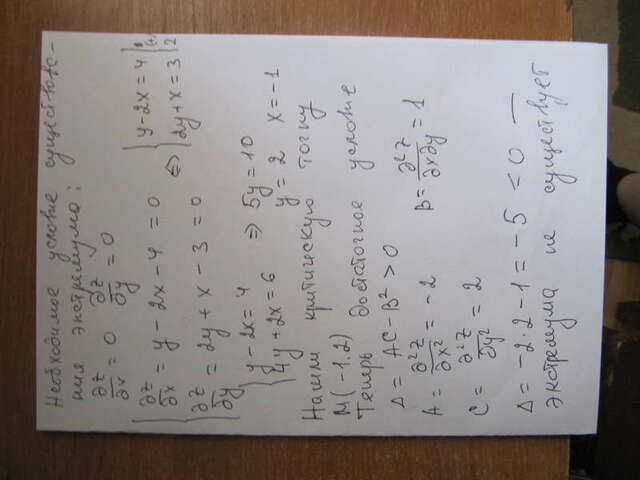 Необходимое условие существова-
ния экстремума:
∂z/∂x = 0 ∂z/∂y = 0
{ ∂z/∂x = y - 2x - 4 = 0
{ ∂z/∂y = 2y + x - 3 = 0 ⇔ { y - 2x = 4 | 2y + x = 3 | 2
{ y - 2x = 4 ⇒ 5y = 10
{ 4y + 2x = 6 y = 2 x = -1
Нашли критическую точку
M(-1.2)
Теперь достаточное условие
Δ = AC - B² > 0
A = ∂²z/∂x² = -2 B = ∂²z/∂x∂y = 1
C = ∂²z/∂y² = 2
Δ = -2·2 - 1 = -5 < 0 —
экстремума не существует